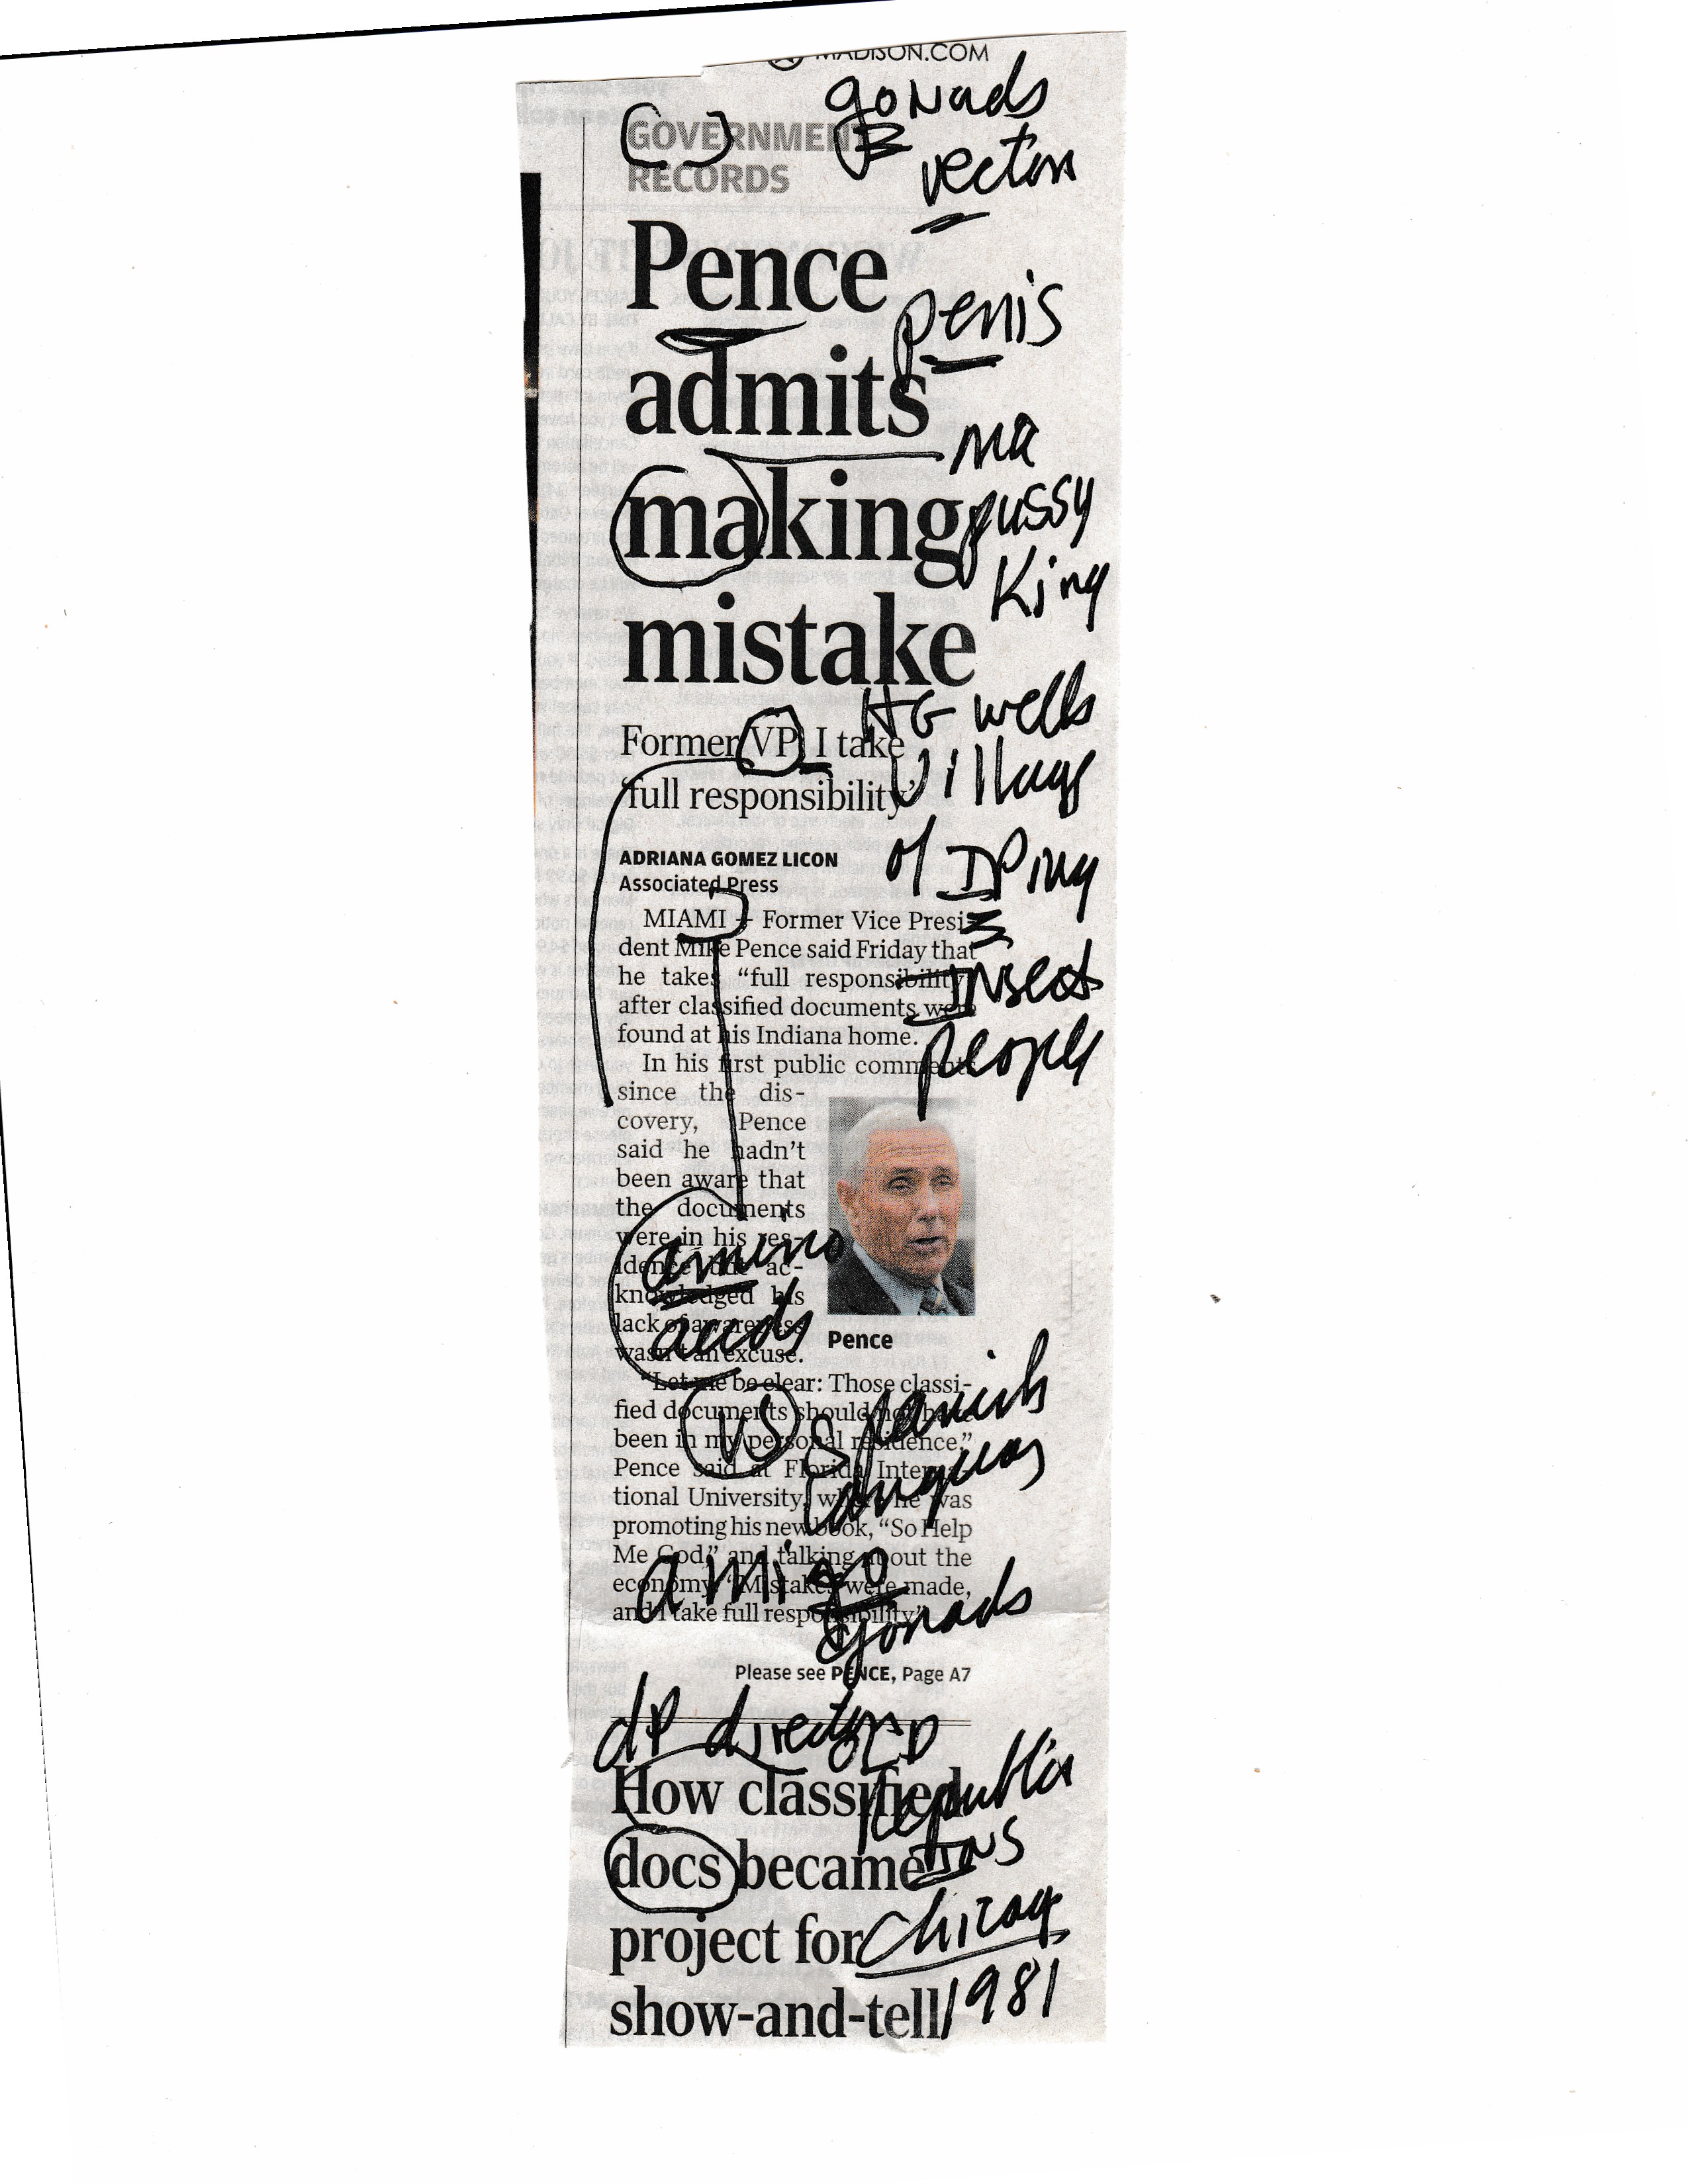 MADISON.COM
goNads
vectors
GOVERNMENT
RECORDS
Pence
penis
admits
ma
making
pussy
King
mistake
HG wells
Former VP: I take
Village
'full responsibility'
of DPing
ADRIANA GOMEZ LICON
Associated Press
MIAMI — Former Vice Presi-
dent Mike Pence said Friday that
he takes “full responsibility”
INsect
after classified documents were
found at his Indiana home.
people
In his first public comments
since the dis-
covery, Pence
said he hadn't
been aware that
the documents
were in his res-
idence but ac-
knowledged his
lack of awareness
wasn't an excuse.
amino
acids
Pence
“Let me be clear: Those classi-
fied documents should not have
been in my personal residence,”
Pence said at Florida Interna-
tional University, where he was
promoting his new book, “So Help
Me God,” and talking about the
economy. “Mistakes were made,
and I take full responsibility.”
VS Spanish
amigo
gonads
Please see PENCE, Page A7
dP director
How classified
Republic
docs became
project for
Chicago
show-and-tell
1981